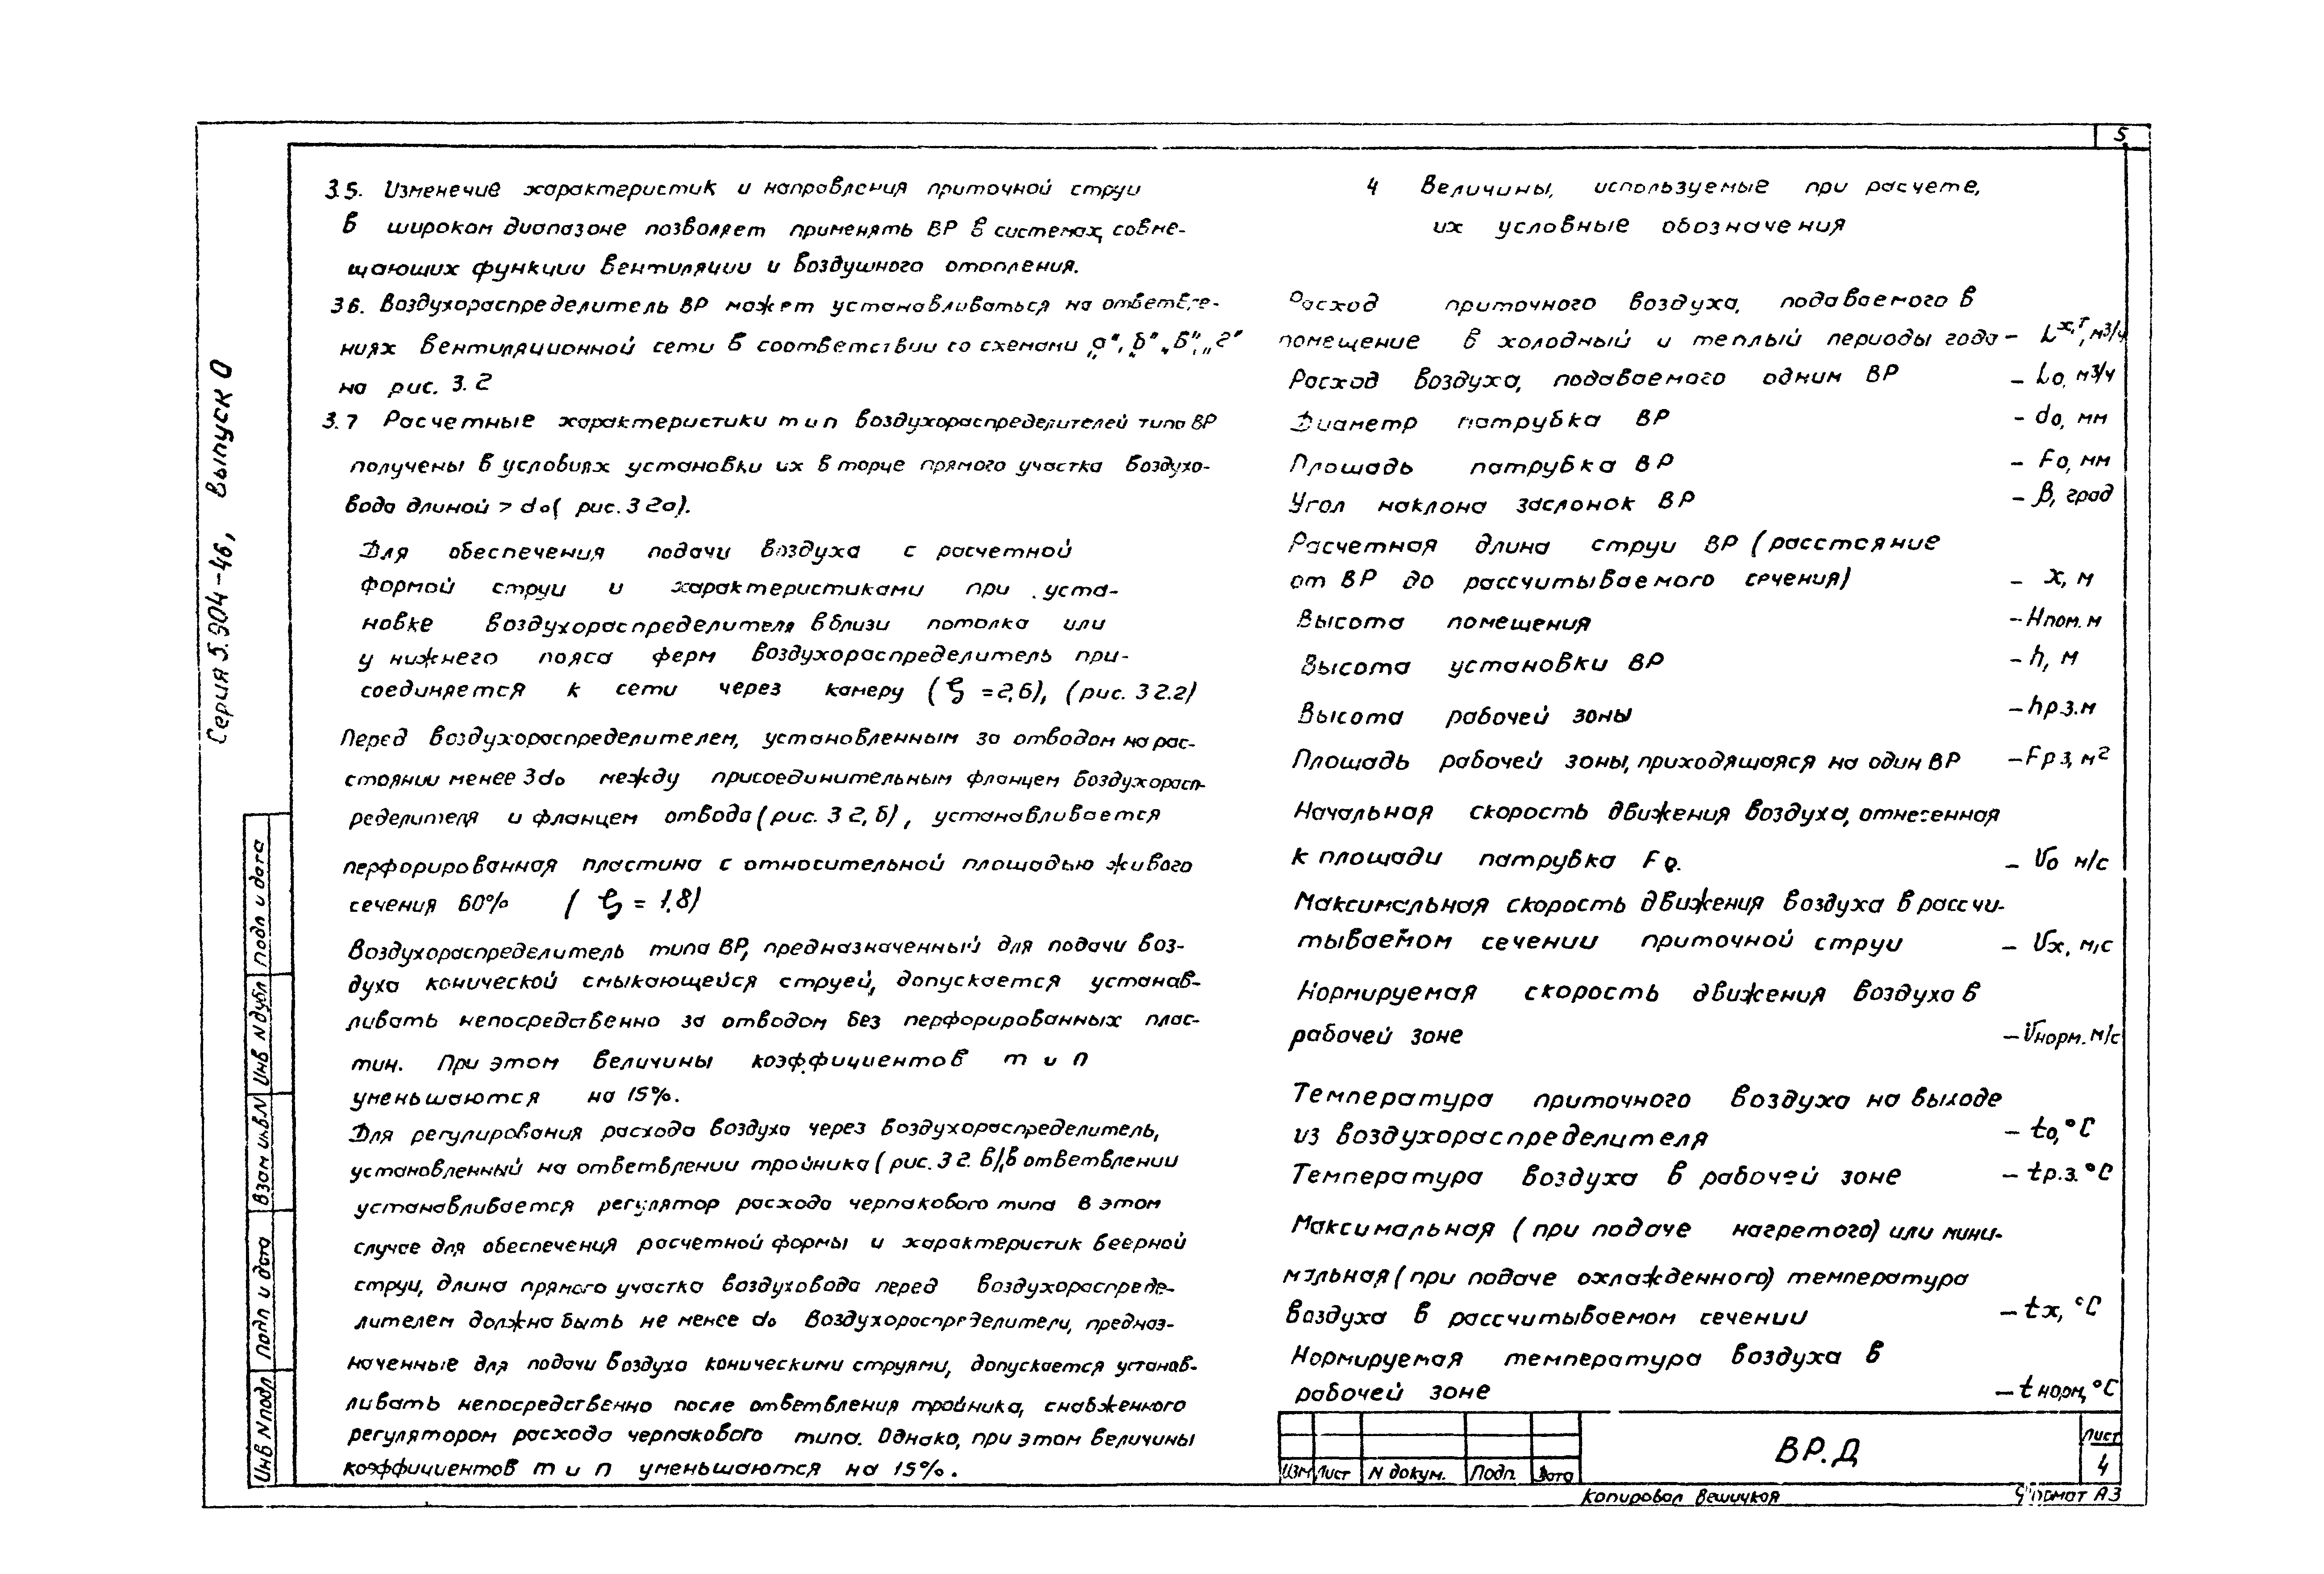 5
Серия 5.904-46, Выпуск 0
3.5. Изменение характеристик и направления приточной струи
в широком диапазоне позволяет применять ВР в системах, совме-
щающих функции вентиляции и воздушного отопления.
3.6. Воздухораспределитель ВР может устанавливаться на ответвле-
ниях вентиляционной сети в соответствии со схемами „а“, „б“ „в“, „г“
на рис. 3.2
3.7 Расчетные характеристики m и n воздухораспределителей типа ВР
получены в условиях установки их в торце прямого участка воздухо-
вода длиной > do( рис. 3 2а).
Для обеспечения подачи воздуха с расчетной
формой струи и характеристиками при уста-
новке воздухораспределителя вблизи потолка или
у нижнего пояса ферм воздухораспределитель при-
соединяется к сети через камеру ( ζ =2,6), (рис. 3 2.г)
Перед воздухораспределителем, установленным за отводом на рас-
стоянии менее 3do между присоединительным фланцем воздухорасп-
ределителя и фланцем отвода (рис. 3 2, б) , устанавливается
перфорированная пластина с относительной площадью живого
сечения 60% ( ζ = 1,8)
Воздухораспределитель типа ВР, предназначенный для подачи воз-
духа конической смыкающейся струей, допускается устанав-
ливать непосредственно за отводом без перфорированных плас-
тин. При этом величины коэффициентов m и n
уменьшаются на 15%.
Для регулирования расхода воздуха через воздухораспределитель,
установленный на ответвлении тройника ( рис. 3 2. в), в ответвлении
устанавливается регулятор расхода черпакового типа в этом
случае для обеспечения расчетной формы и характеристик веерной
струи, длина прямого участка воздуховода перед воздухораспреде-
лителем должна быть не менее do Воздухораспределители, предназ-
наченные для подачи воздуха коническими струями, допускается устанав-
ливать непосредственно после ответвления тройника, снабженного
регулятором расхода черпакового типа. Однако, при этом величины
коэффициентов m и n уменьшаются на 15%.
4 Величины, используемые при расчете,
их условные обозначения
Расход приточного воздуха, подаваемого в
помещение в холодный и теплый периоды года – Lх,т, м3/ч
Расход воздуха, подаваемого одним ВР – Lo, м3/ч
Диаметр патрубка ВР – do, мм
Площадь патрубка ВР – Fo, мм
Угол наклона заслонок ВР – β, град
Расчетная длина струи ВР (расстояние
от ВР до рассчитываемого сечения) – x, м
Высота помещения – Нпом. м
Высота установки ВР – h, м
Высота рабочей зоны – hр.з. м
Площадь рабочей зоны, приходящаяся на один ВР – Fр з, м2
Начальная скорость движения воздуха, отнесенная
к площади патрубка Fo. – Vo м/с
Максимальная скорость движения воздуха в рассчи-
тываемом сечении приточной струи – Vx, м/с
Нормируемая скорость движения воздуха в
рабочей зоне – Vнорм. м/с
Температура приточного воздуха на выходе
из воздухораспределителя – to, °C
Температура воздуха в рабочей зоне – tр.з. °C
Максимальная ( при подаче нагретого) или мини-
мальная ( при подаче охлажденного) температура
воздуха в рассчитываемом сечении – tx, °C
Нормируемая температура воздуха в
рабочей зоне – t норм, °C
Подп и дата
Инв N дубл
Взам инв.N
Подп и дата
Инв N подл
Изм Лист N докум. Подп. Дата
ВР.Д
Лист
4
Копировал Вешицкая Формат А3